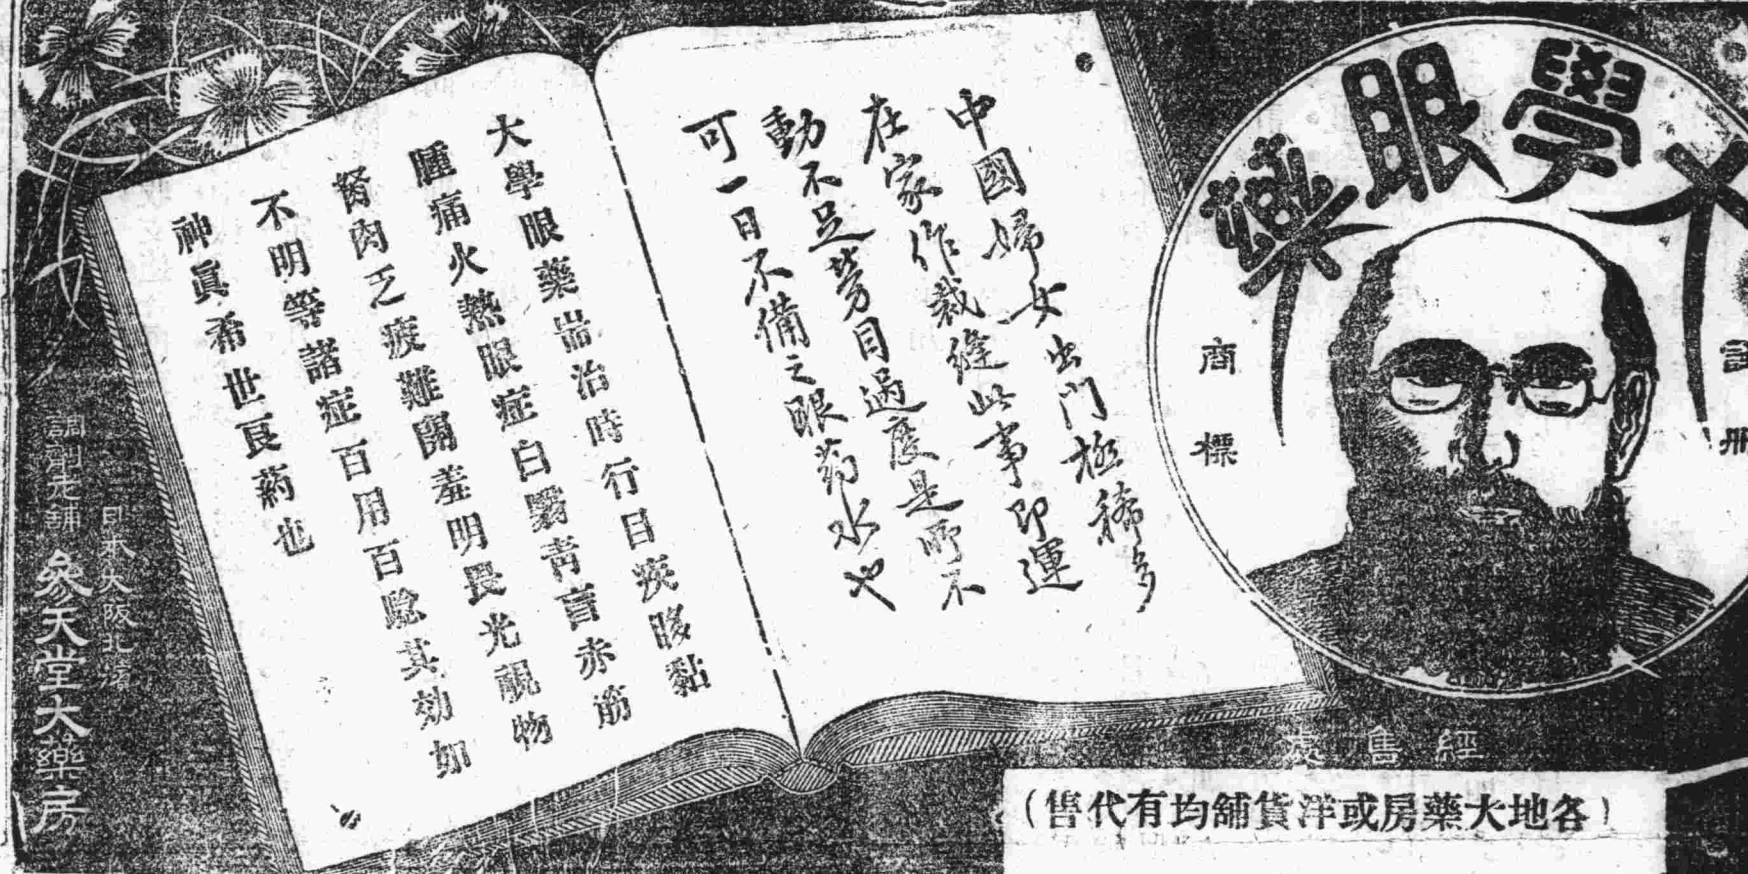 大學眼藥
註冊
商標
中國婦女出門極稀多
在家作裁縫此事即運
動不足勞目過度是所不
可一日不備之眼药水也
大學眼藥耑治時行目疾眵黏
腫痛火熱眼症白翳靑盲赤筋
胬肉乏疲難開羞明畏光視物
不明等諸症百用百驗其効如
神眞希世良葯也
日本大阪北濱
調劑老舖
參天堂大藥房
經售處
（各地大藥房或洋貨舖均有代售）